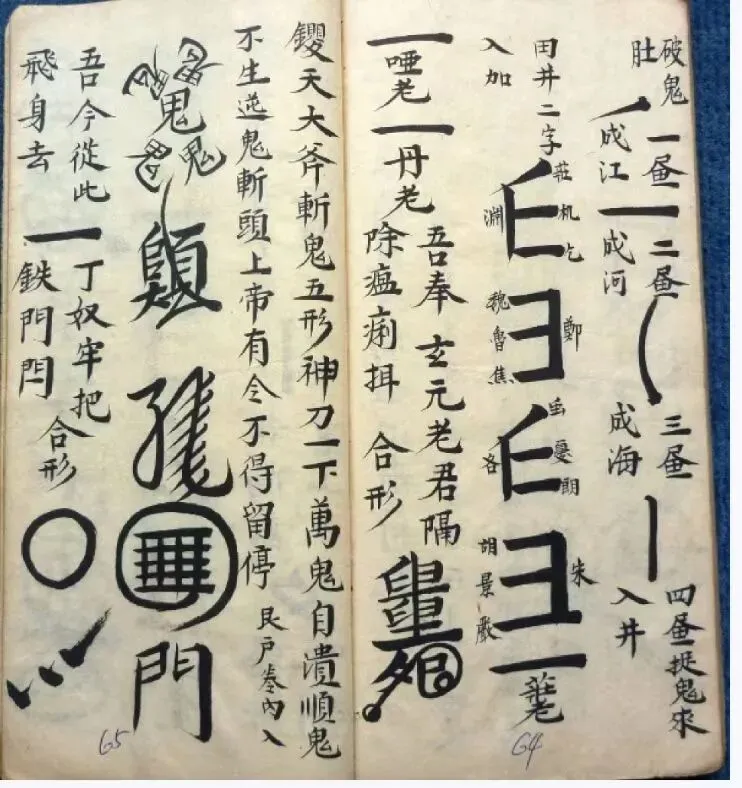 破鬼肚
一蛋成江
二蛋成河
三蛋成海
四蛋捉鬼來入井
田井二字入加
莊机乞
淵
鄭
魏魯焦
朗
洛
朱
胡景
一
一啞老
一丹老
吾奉玄元老君隔
除瘟痢
合形
鑁天大斧斬鬼五形神刀一下萬鬼自潰順鬼
不生逆鬼斬頭上帝有令不得留停
艮戶卷內入
鬼
鬼
鬼
門
吾今從此一丁奴牢把
飛身去鉄門閂
合形
64
65